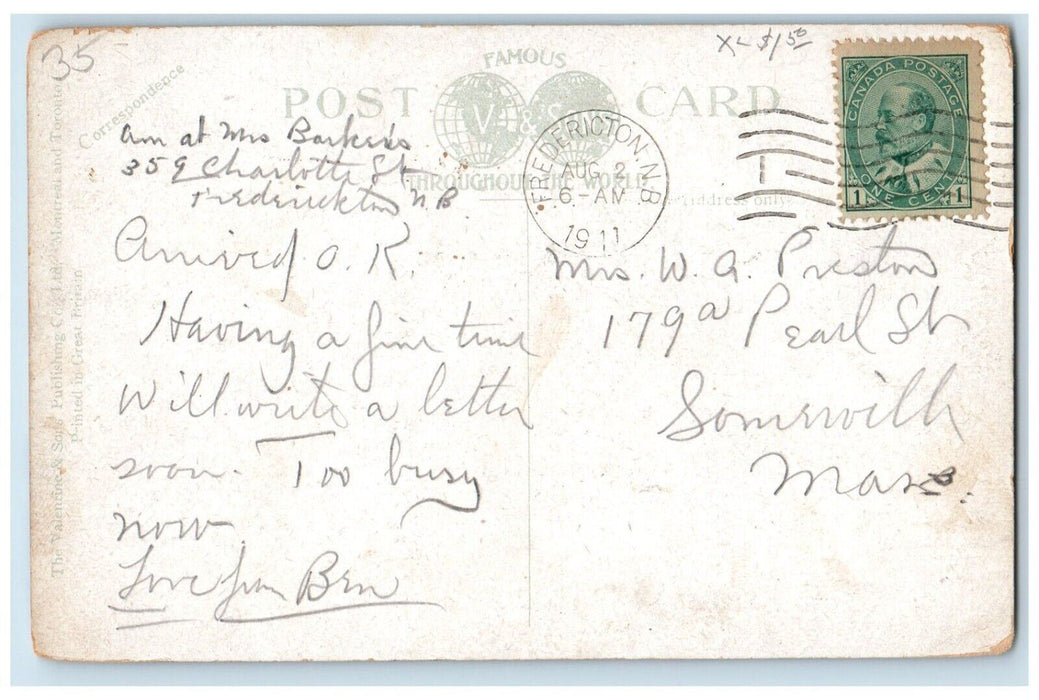 35
XL $1.50
FAMOUS
POST CARD
V & S
THROUGHOUT THE WORLD
Correspondence
Address only
The Valentine & Sons Publishing Co., Ltd., Montreal and Toronto
Printed in Great Britain
CANADA POSTAGE
1 ONE CENT 1
FREDERICTON, N.B.
AUG 2
6-AM
1911
Am at Mrs Barker's
359 Charlotte St
Frederickton N.B
Arrived O.K.
Having a fine time
Will write a letter
soon. Too busy
now
Love from Ben
Mrs. W. A. Preston
179a Pearl St
Somerville
Mass.